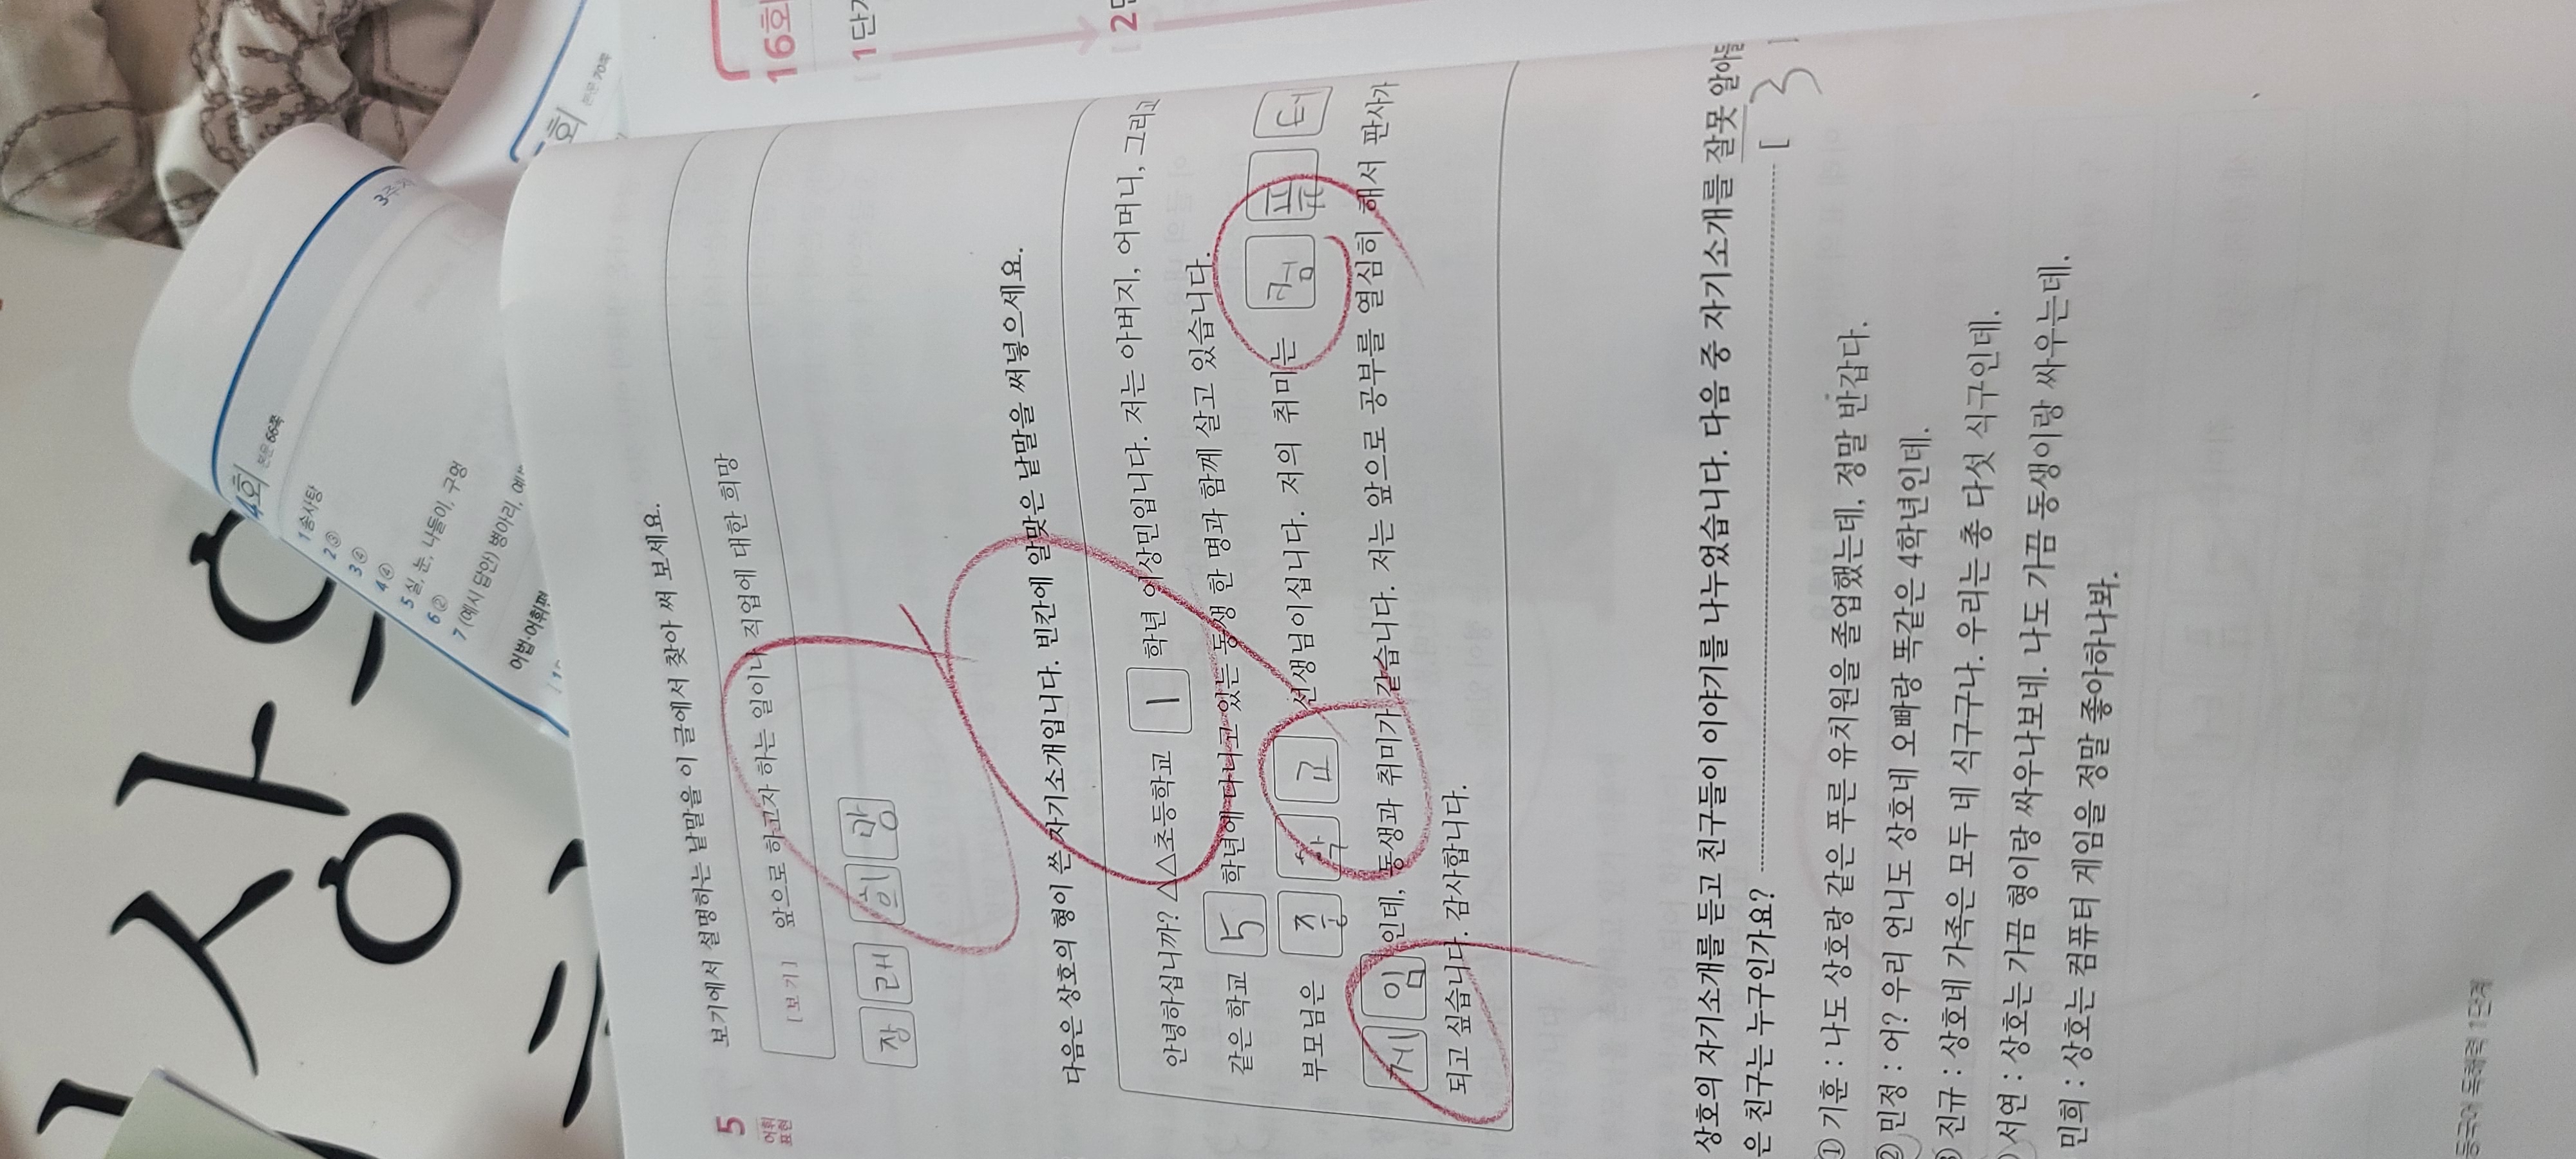 5
어휘
표현
보기에서 설명하는 낱말을 이 글에서 찾아 써 보세요.
[보기] 앞으로 하고자 하는 일이나 직업에 대한 희망
장 래 희 망
다음은 상호의 형이 쓴 자기소개입니다. 빈칸에 알맞은 낱말을 써넣으세요.
안녕하십니까? △△초등학교 1 학년 이상민입니다. 저는 아버지, 어머니, 그리고
같은 학교 5 학년에 다니고 있는 동생 한 명과 함께 살고 있습니다.
부모님은 중 학 교 선생님이십니다. 저의 취미는 컴 퓨 터
게 임 인데, 동생과 취미가 같습니다. 저는 앞으로 공부를 열심히 해서 판사가
되고 싶습니다. 감사합니다.
상호의 자기소개를 듣고 친구들이 이야기를 나누었습니다. 다음 중 자기소개를 잘못
은 친구는 누구인가요? [ 3 ]
① 기훈 : 나도 상호랑 같은 푸른 유치원을 졸업했는데, 정말 반갑다.
② 민정 : 어? 우리 언니도 상호네 오빠랑 똑같은 4학년인데.
③ 진규 : 상호네 가족은 모두 네 식구구나. 우리는 총 다섯 식구인데.
서연 : 상호는 가끔 형이랑 싸우나보네. 나도 가끔 동생이랑 싸우는데.
민희 : 상호는 컴퓨터 게임을 정말 좋아하나봐.
독해력 1단계
16회
1단계
2
4회 본문 66쪽
1 솜사탕
2 ③
3 ④
4 ④
5 실, 눈, 나들이, 구멍
6 ②
7 (예시 답안) 병아리,
어법·어휘편
3주차
회 본문 70쪽